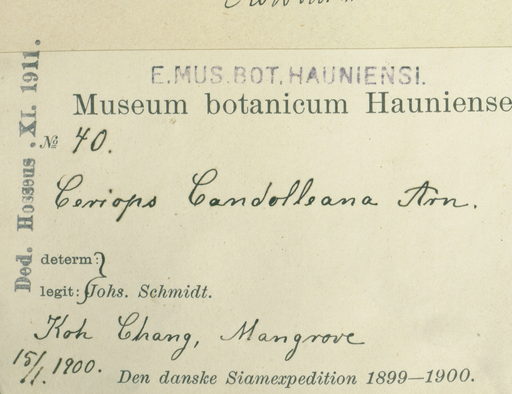 E. MUS. BOT. HAUNIENSI.
Museum botanicum Hauniense
№ 40.
Ceriops Candolleana Arn.
determ:
legit: Johs. Schmidt.
Koh Chang, Mangrove
15/1. 1900.
Den danske Siamexpedition 1899—1900.
Ded. Hosseus . XI. 1911.